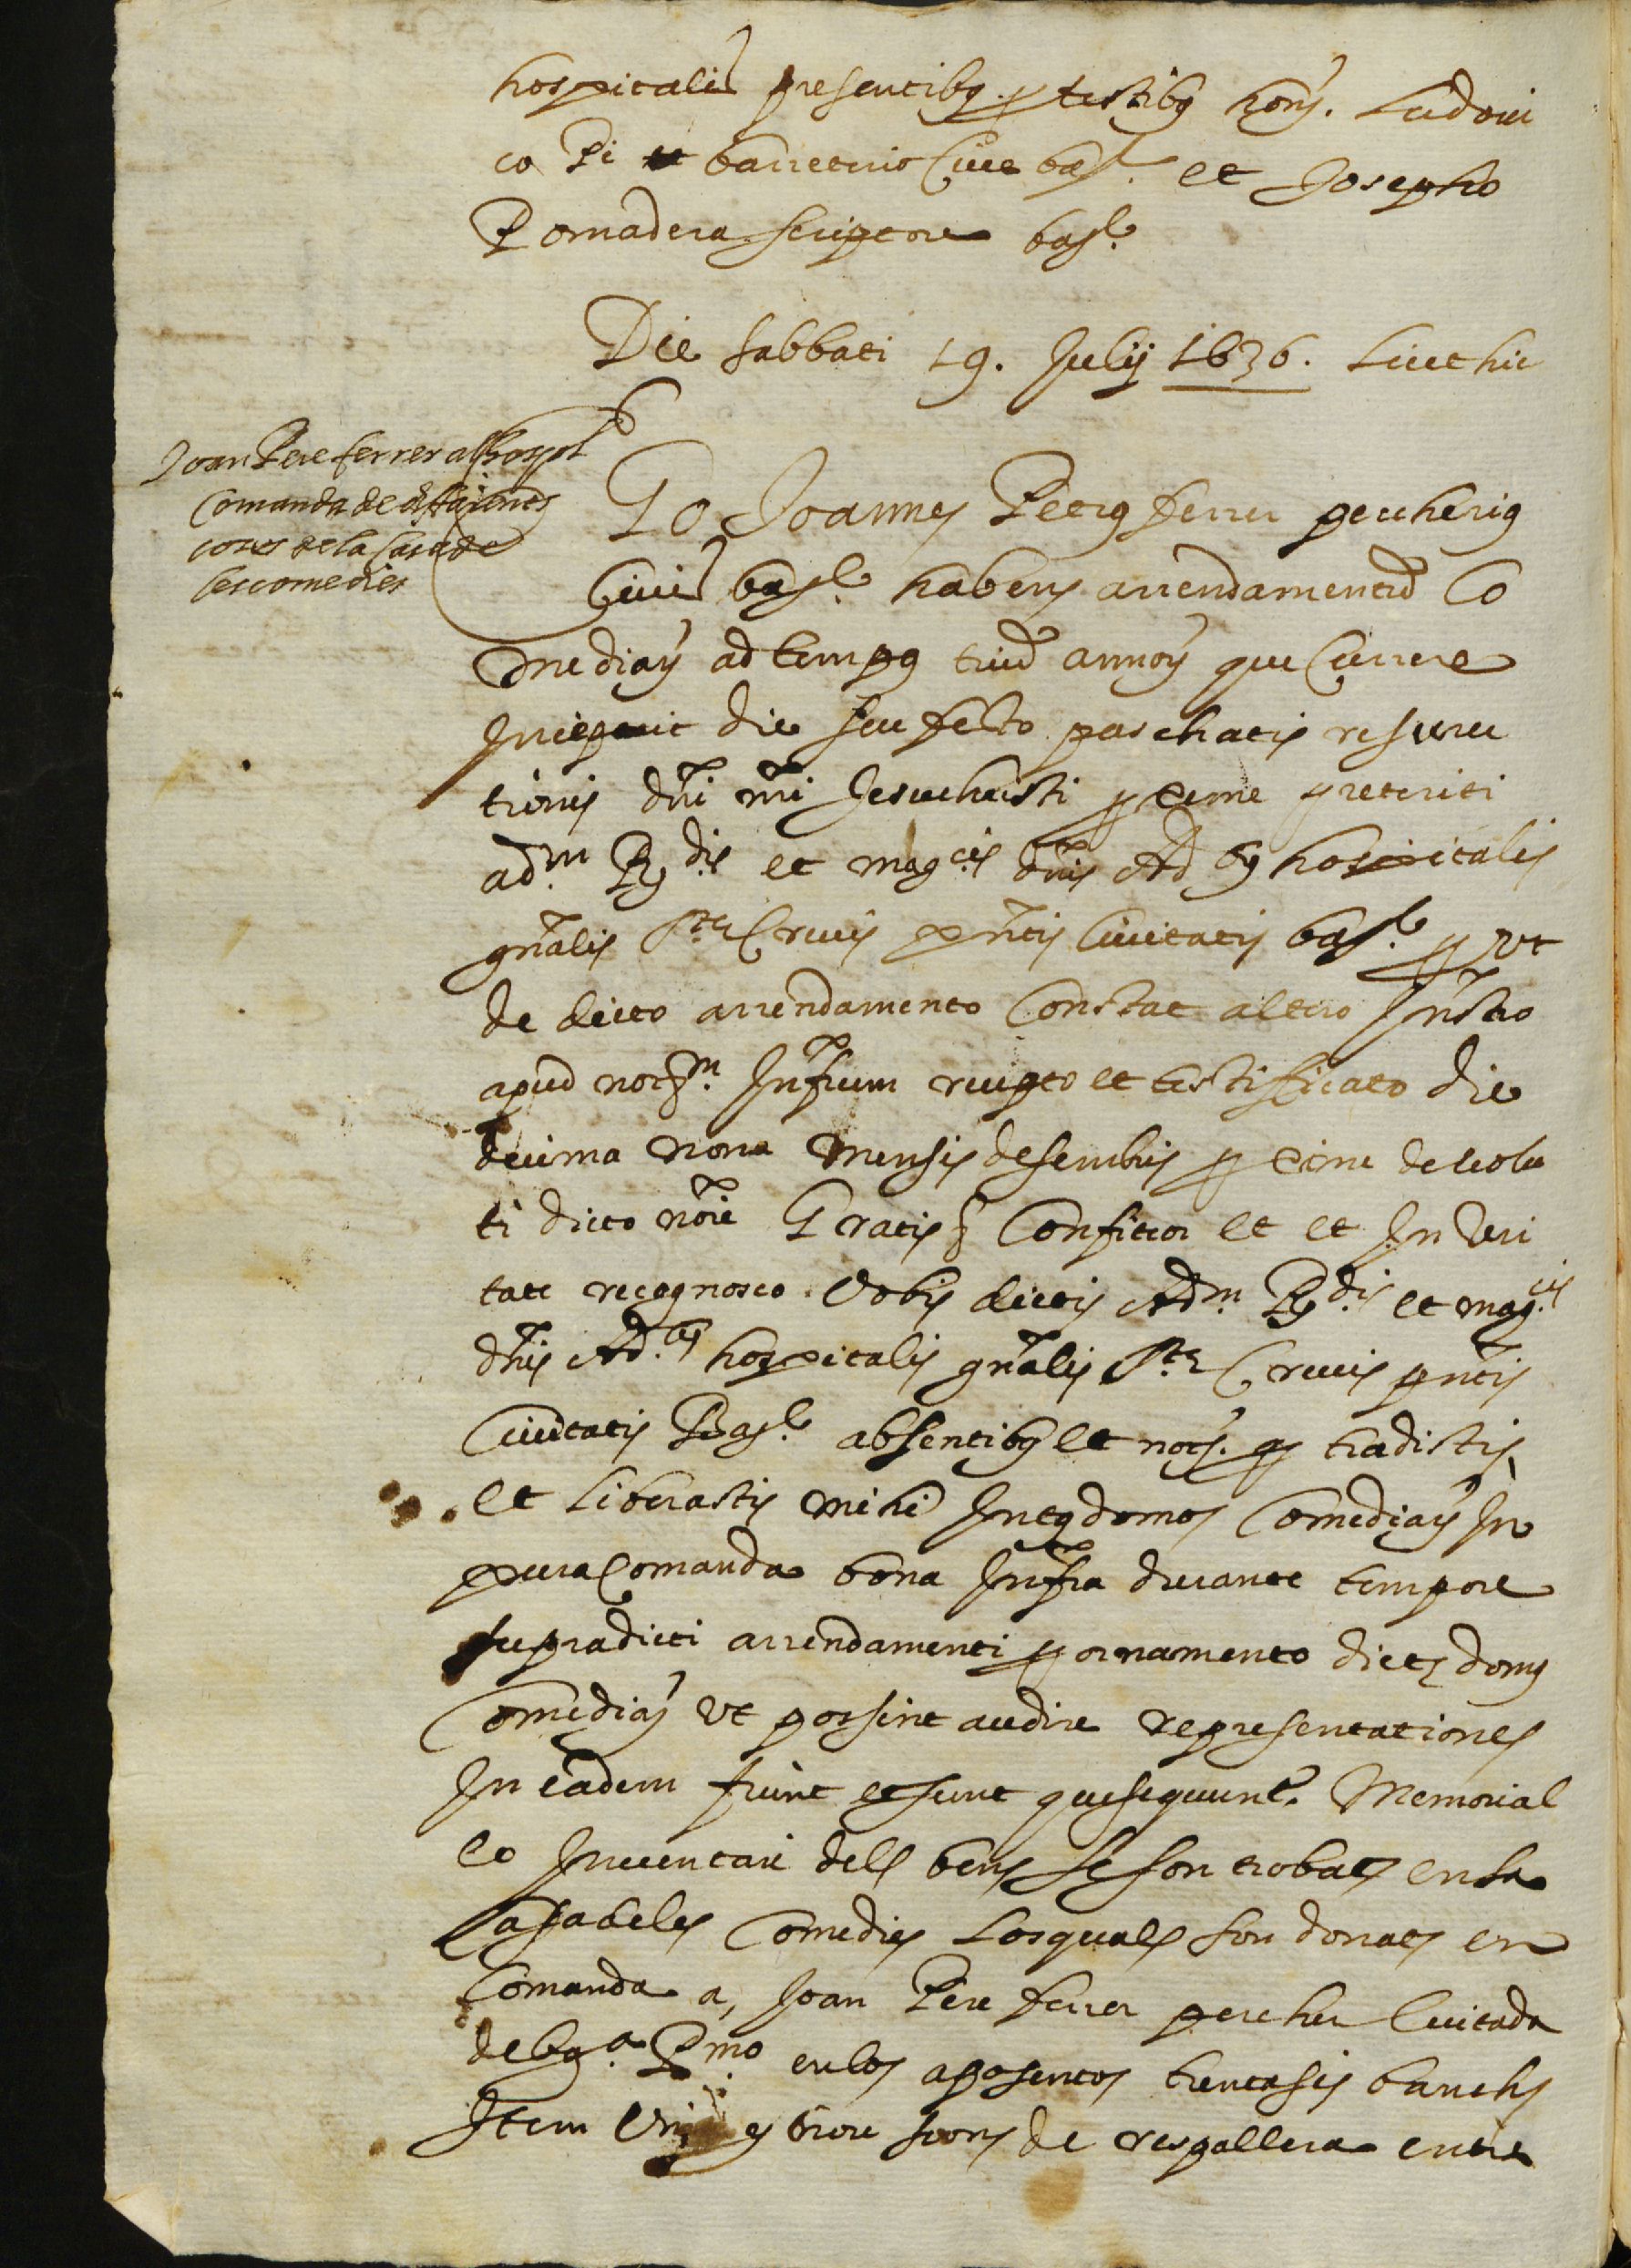 hospitalis presentibus pro testibus hon. Ludoui
co Pi barreterio Ciue bar. et Josepho
Pomadera scriptore bar.
Die sabbati 19. Julij 1636. Licet hic
Joan Pere ferrer al hospl
Comanda de differents
coses de la Casa de
les comedies
Ego Joannes Petrus ferrer percherius
Ciuis bar. habens arrendamentum Co
mediar ad tempus trium annor que Currere
Inceperit die seu festo paschatis resurrec
tionis dni nri Jesuchristi proxime preteriti
adm. Rdis et magcis dnis Ad bus hospitalis
gnalis Ste Crucis pntis Ciuitatis bar. prout
de dicto arrendamento Constat altero Instro
apud notm. Infrum recepto et testificato die
decima nona mensis desembris proxime deuolu
ti dicto noie Gratis & Confiteor et et In Veri
tate recognosco Vobis dictis Adm. Rdis et magcis
dnis Ad.bus hospitalis gnalis Ste Crucis pntis
Ciuitatis Bar. absentibus et not. q tradistis
et liberastis mihi Intus domos Comediar In
pura Comanda bona Infra durante tempore
supradicti arrendamenti pro ornamento dicte domus
Comediar Vt possint audire representationes
In eadem fiunt et sunt que sequunt. Memorial
eo Inuentari dels bens se son trobats en la
Casa de les Comedies Los quals son donats en
Comanda a, Joan Pere ferrer percher Ciutada
de bara. Pmo. en los aposentos trentasis banchs
Item de respallera entre